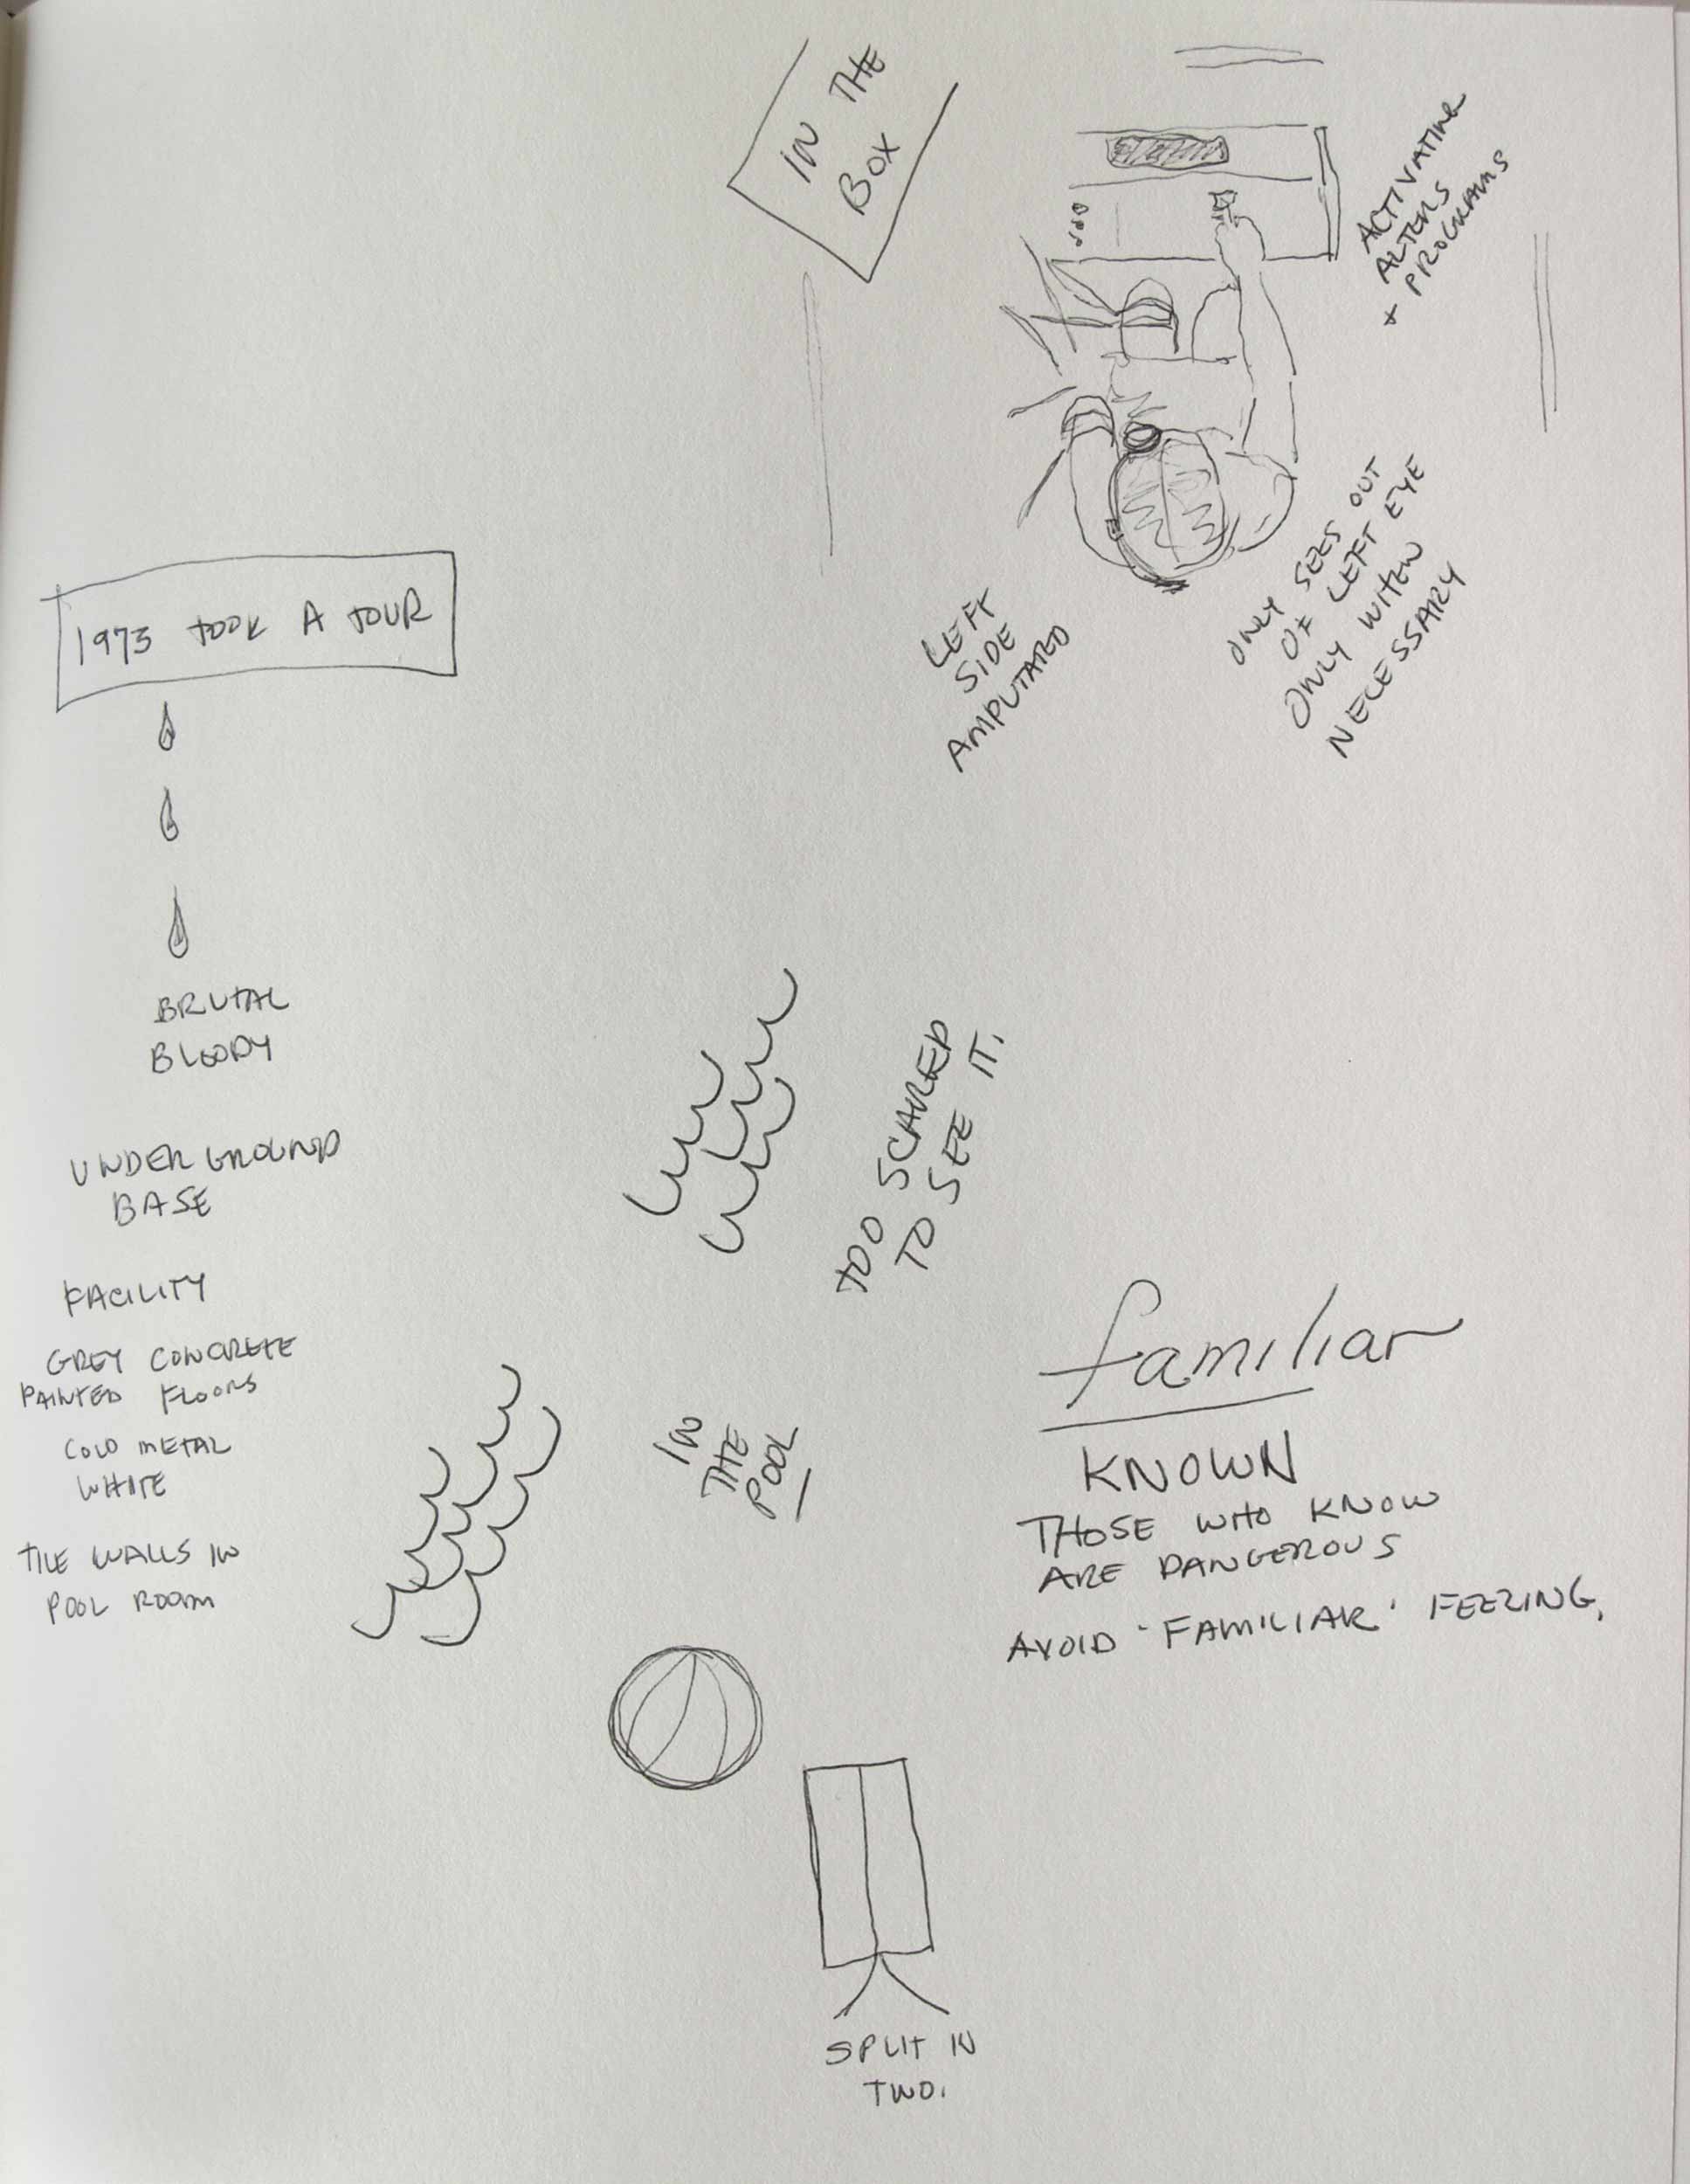 IN THE
BOX
ACTIVATING
ALTERS
+ PROGRAMS
ONLY SEES OUT
OF LEFT EYE
ONLY WHEN
NECESSARY
LEFT
SIDE
AMPUTATED
1973 TOOK A TOUR
BRUTAL
BLOODY
UNDERGROUND
BASE
FACILITY
GREY CONCRETE
PAINTED FLOORS
COLD METAL
WHITE
TILE WALLS IN
POOL ROOM
TOO SCARED
TO SEE IT.
IN
THE
POOL
familiar
KNOWN
THOSE WHO KNOW
ARE DANGEROUS
AVOID 'FAMILIAR' FEELING.
SPLIT IN
TWO.